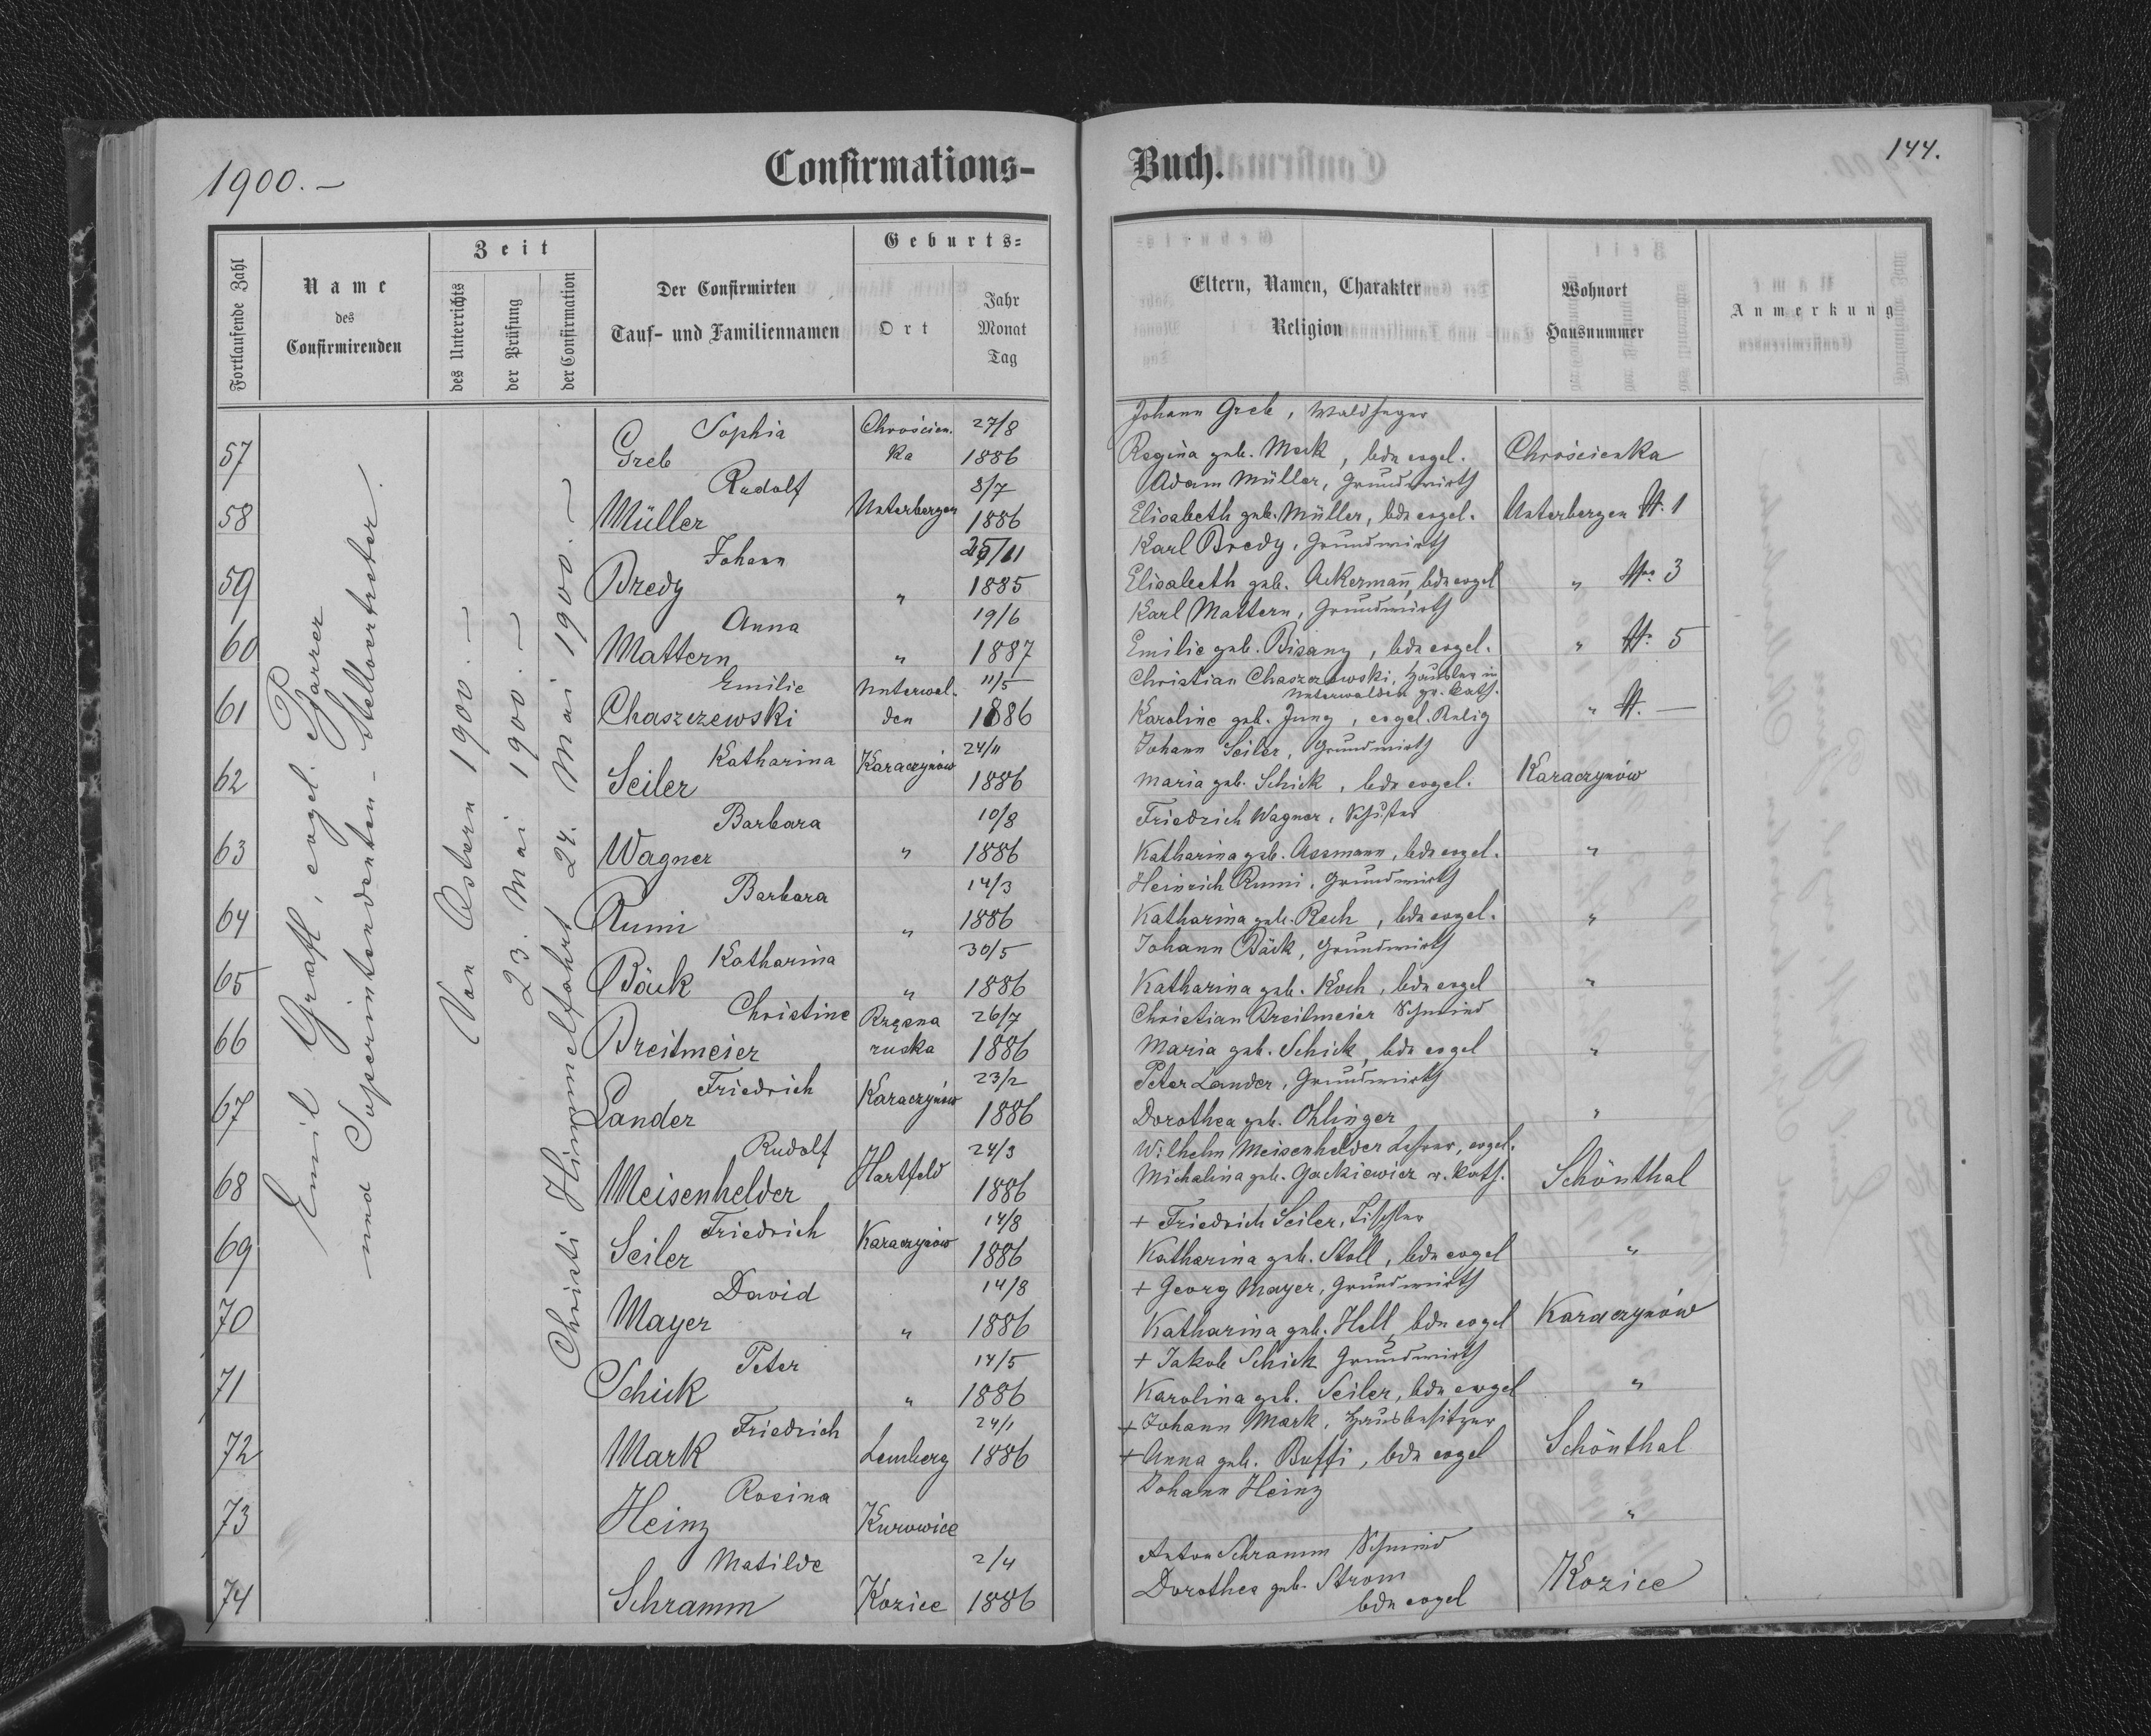 1900. –
Confirmations-
Buch.
144.
Fortlaufende Zahl
Name
des
Confirmirenden
Zeit
des Unterrichts
der Prüfung
der Confirmation
Der Confirmirten
Tauf- und Familiennamen
Geburts-
Ort
Jahr
Monat
Tag
Eltern, Namen, Charakter
Religion
Wohnort
Hausnummer
Anmerkung
Emil Grafl, evgel. Pfarrer
und Superintendenten-Stellvertreter.
Von Ostern 1900. –
23. Mai 1900. –
Christi Himmelfahrt 24. Mai 1900. –
57
Sophia
Greb
Chrościen.
ka
27/8
1886
Johann Greb, Waldheger
Regina geb. Mock, bde evgel.
Chrościenka
58
Rudolf
Müller
Unterbergen
8/7
1886
Adam Müller, Grundwirth
Elisabeth geb. Müller, bde evgel.
Unterbergen N. 1
59
Johann
Bredy
"
/11
1885
Karl Bredy, Grundwirth
Elisabeth geb. Ackermann, bde evgel
" Nro 3
60
Anna
Mattern
"
19/6
1887
Karl Mattern, Grundwirth
Emilie geb. Bisanz, bde evgel.
" N. 5
61
Emilie
Chaszczewski
Unterwal-
den
11/5
1886
Christian Chaszczewski, Häusler in
Unterwalden gr. kath.
Karoline geb. Jung, evgel. Relig
" N. —
62
Katharina
Seiler
Karaczynów
24/11
1886
Johann Seiler, Grundwirth
Maria geb. Schick, bde evgel.
Karaczynów
63
Barbara
Wagner
"
10/8
1886
Friedrich Wagner, Schuster
Katharina geb. Assmann, bde evgel.
"
64
Barbara
Rumi
"
14/3
1886
Heinrich Rumi, Grundwirth
Katharina geb. Rech, bde evgel.
"
65
Katharina
Bäck
"
30/5
1886
Johann Bäck, Grundwirth
Katharina geb. Koch, bde evgel
"
66
Christine
Breitmeier
Rzęsna
ruska
26/7
1886
Christian Breitmeier Schmied
Maria geb. Schick, bde evgel
"
67
Friedrich
Lander
Karaczynów
23/2
1886
Peter Lander, Grundwirth
Dorothea geb. Ohlinger
"
68
Rudolf
Meisenhelder
Hartfeld
24/3
1886
Wilhelm Meisenhelder Lehrer, evgel.
Michalina geb. Gackiewicz r. kath.
Schönthal
69
Friedrich
Seiler
Karaczynów
14/8
1886
+ Friedrich Seiler, Tischler
Katharina geb. Stoll, bde evgel
"
70
David
Mayer
"
14/8
1886
+ Georg Mayer, Grundwirth
Katharina geb. Hell, bde evgel
Karaczynów
71
Peter
Schick
"
14/5
1886
+ Jakob Schick Grundwirth
Karolina geb. Seiler, bde evgel
"
72
Friedrich
Mark
Lemberg
24/1
1886
+ Johann Mark, Hausbesitzer
+ Anna geb. Buffi, bde evgel
Schönthal
73
Rosina
Heinz
Kurowice
Johann Heinz
"
74
Matilde
Schramm
Kozice
2/4
1886
Anton Schramm Schmied
Dorothea geb. Strom
bde evgel
Kozice